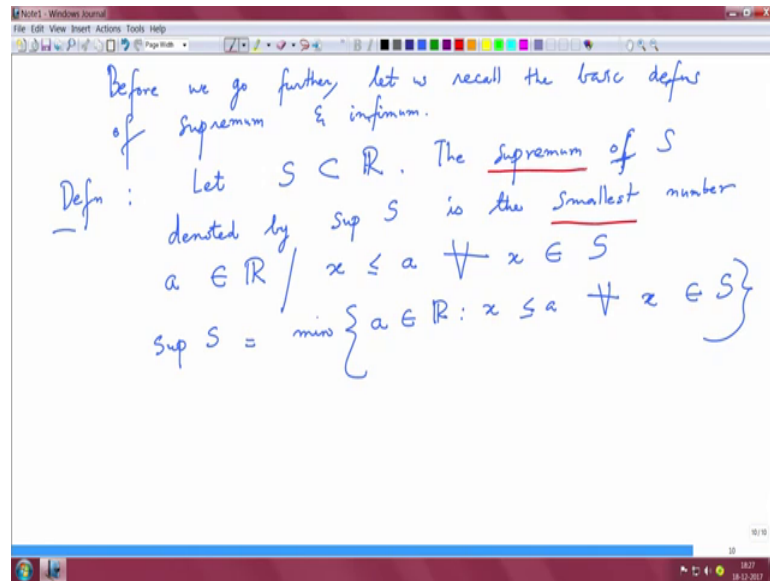 Note1 - Windows Journal
File Edit View Insert Actions Tools Help
Page Width
Before we go further, let us recall the basic defns
of supremum & infimum.
Defn : Let S ⊂ ℝ. The supremum of S
denoted by sup S is the smallest number
a ∈ ℝ / x ≤ a ∀ x ∈ S
sup S = min { a ∈ ℝ : x ≤ a ∀ x ∈ S }
10/10
10
18:27
18-12-2017